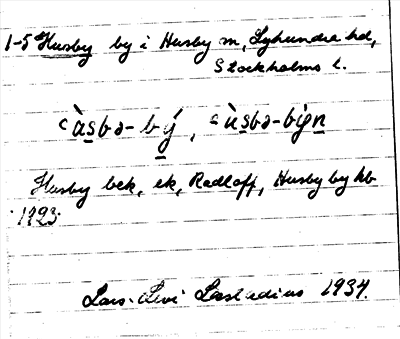 1-5 Husby by i Husby sn, Lyhundra hd,
Stockholms l.
Husby bek, ek, Radloff, Husby by kb
1923.
Lars-Levi Læstadius 1934.